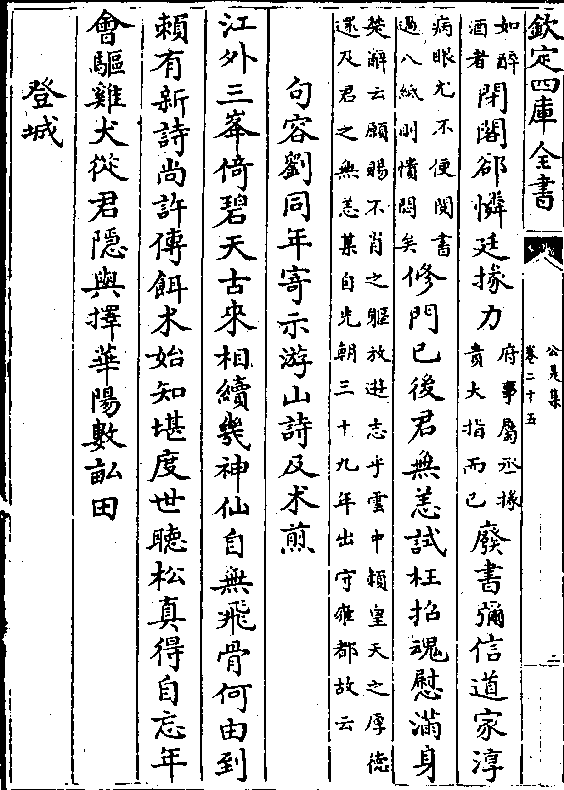 欽定四庫全書
公是集
卷二十五
二
如醉
酒者
閉閣卻憐廷掾力
府事屬丞掾
責大指而已
廢書彌信道家淳
病眼尤不便閱書
過八紙則憒悶矣
修門已後君無恙試枉招魂慰滿身
楚辭云願賜不肖之軀放遊志乎雲中賴皇天之厚徳
還及君之無恙某自先朝三十九年出守雍都故云
句容劉同年寄示游山詩及术煎
江外三峯倚碧天古來相續幾神仙自無飛骨何由到
賴有新詩尚許傳餌术始知堪度世聽松真得自忘年
會驅雞犬從君隱與擇華陽數畝田
登城